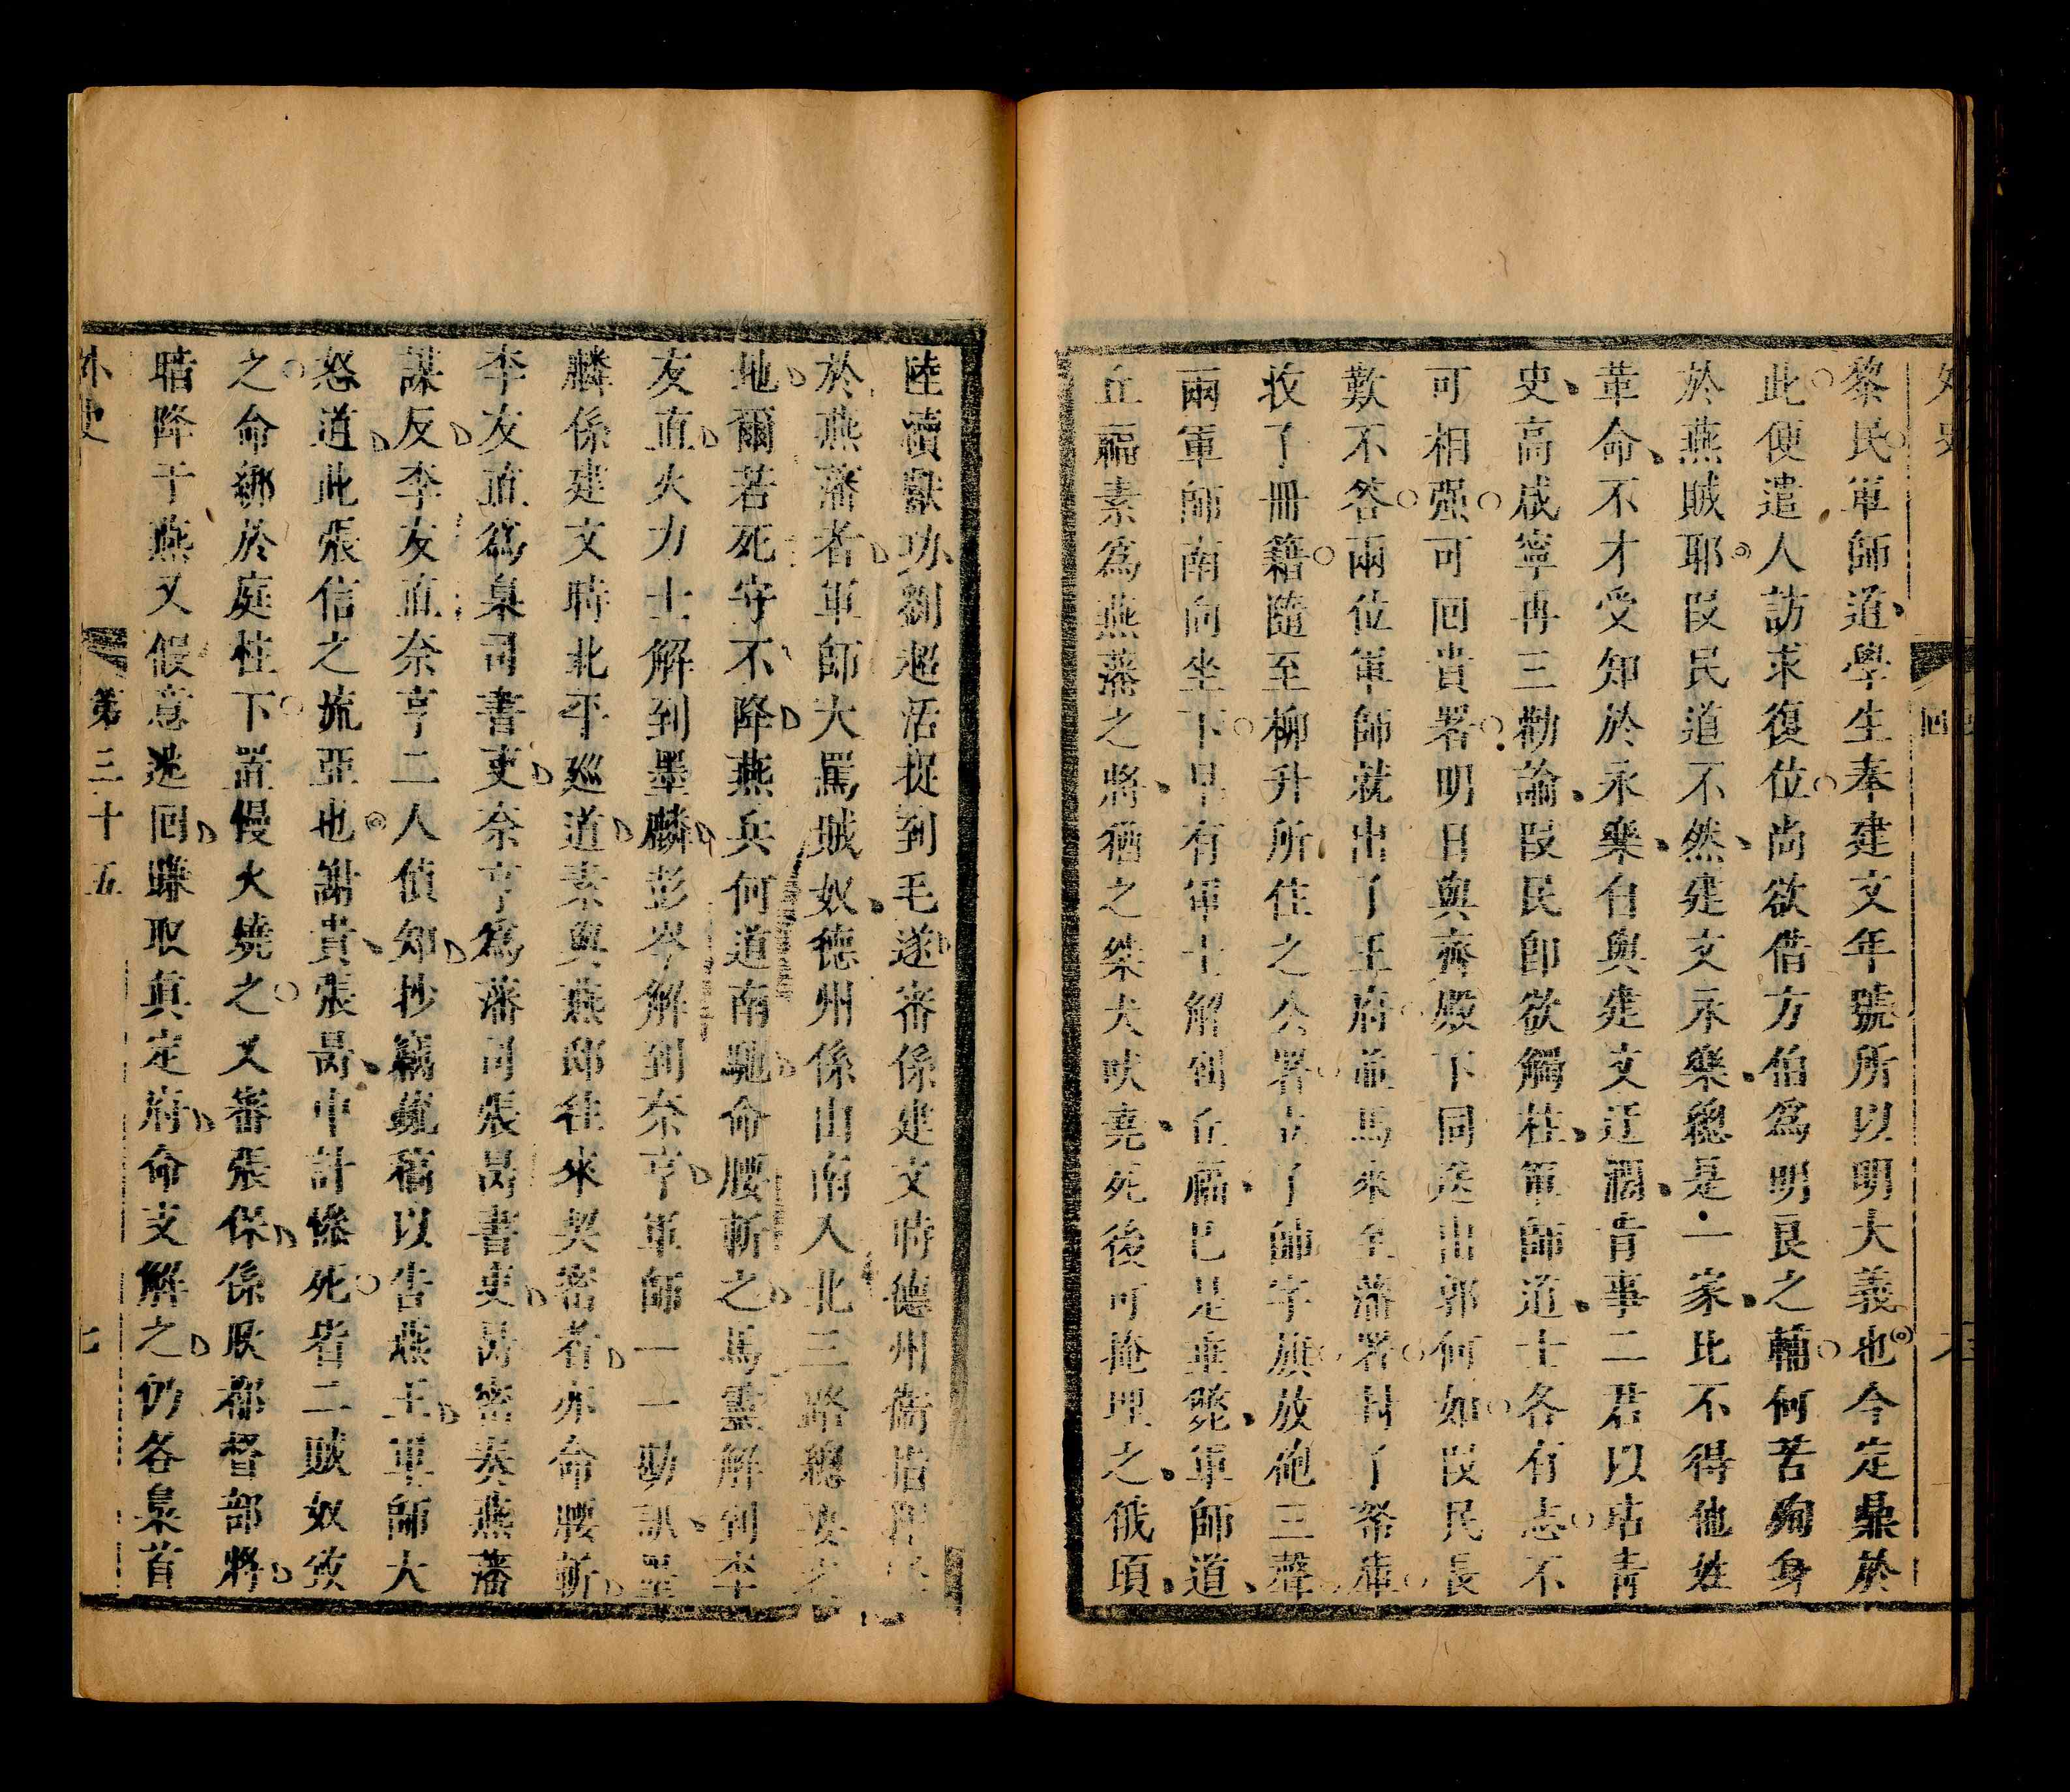 黎民軍師道學生奉建文年號所以明大義也今定鼎於
此便遣人訪求復位尚欲借方伯爲明良之輔何苦殉身
於燕賊耶段民道不然建文永樂總是一家比不得他姓
革命不才受知於永樂自與建文迂濶肯事二君以玷青
史高咸寧再三勸論段民卽欲觸柱軍師道士各有志不
可相强可回貴署明日與齊殿下同送出郭何如段民長
歎不答兩位軍師就出了王府並馬來至藩署封了帑庫
收了冊籍隨至柳升所住之公署立了帥字旗放砲三聲
兩軍師南向坐下早有軍士解到丘福已是垂斃軍師道
丘福素爲燕藩之將猶之桀犬吠堯死後可掩埋之俄頃
陸續獻功劉超活捉到毛遂審係建文時德州衛
於燕藩者軍師大罵賊奴德州係山南入北三路總
地爾若死守不降燕兵何道南馳命腰斬之馬靈解到李
友直火力士解到墨麟彭岑解到奈亨軍師一一勘訊墨
麟係建文時北平廵道素與燕邸往來契密者亦命腰斬
李友直爲臬司書吏奈亨爲藩司張昺書吏昺密奏燕藩
謀反李友直奈亨二人偵知抄竊疏稿以告燕王軍師大
怒道此張信之流亞也謝貴張昺中計慘死皆二賊奴致
之命綁於庭柱下置慢火燒之又審張保係耿都督部將
暗降于燕又假意逃回賺取眞定府命支解之仍各梟首
外史
第三十五
七